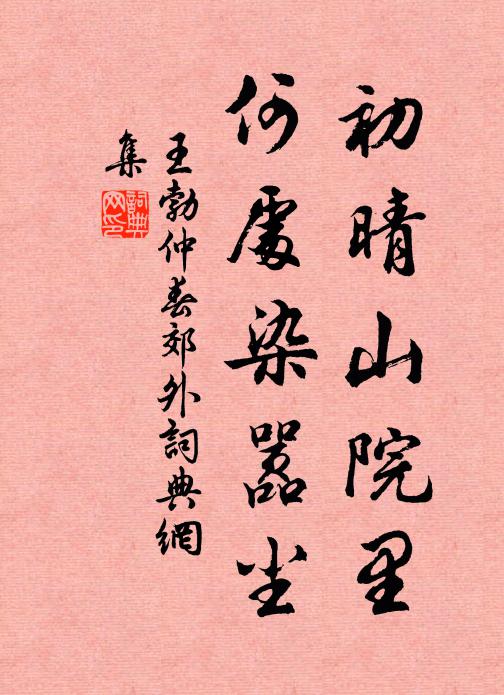 初晴山院里
何處染嚣尘
王勃仲春郊外詞典網
集
詞典
网印